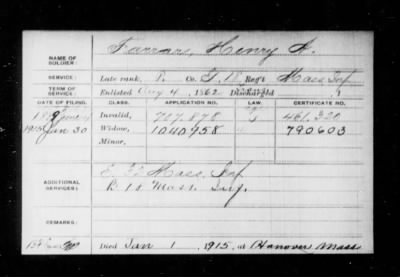 NAME OF SOLDIER: Farrar, Henry A.
SERVICE: Late rank, P. Co. I, 18 Reg't Mass Inf
TERM OF SERVICE: Enlisted Aug 4, 1862
DATE OF FILING. CLASS. APPLICATION NO. LAW. CERTIFICATE NO.
Invalid, 707.878 461.320
1915 Jan 30 Widow, 1040758 790603
Minor,
ADDITIONAL SERVICES: Mass Inf
Mass. Inf.
REMARKS:
Died Jan 1, 1915, at Hanover Mass